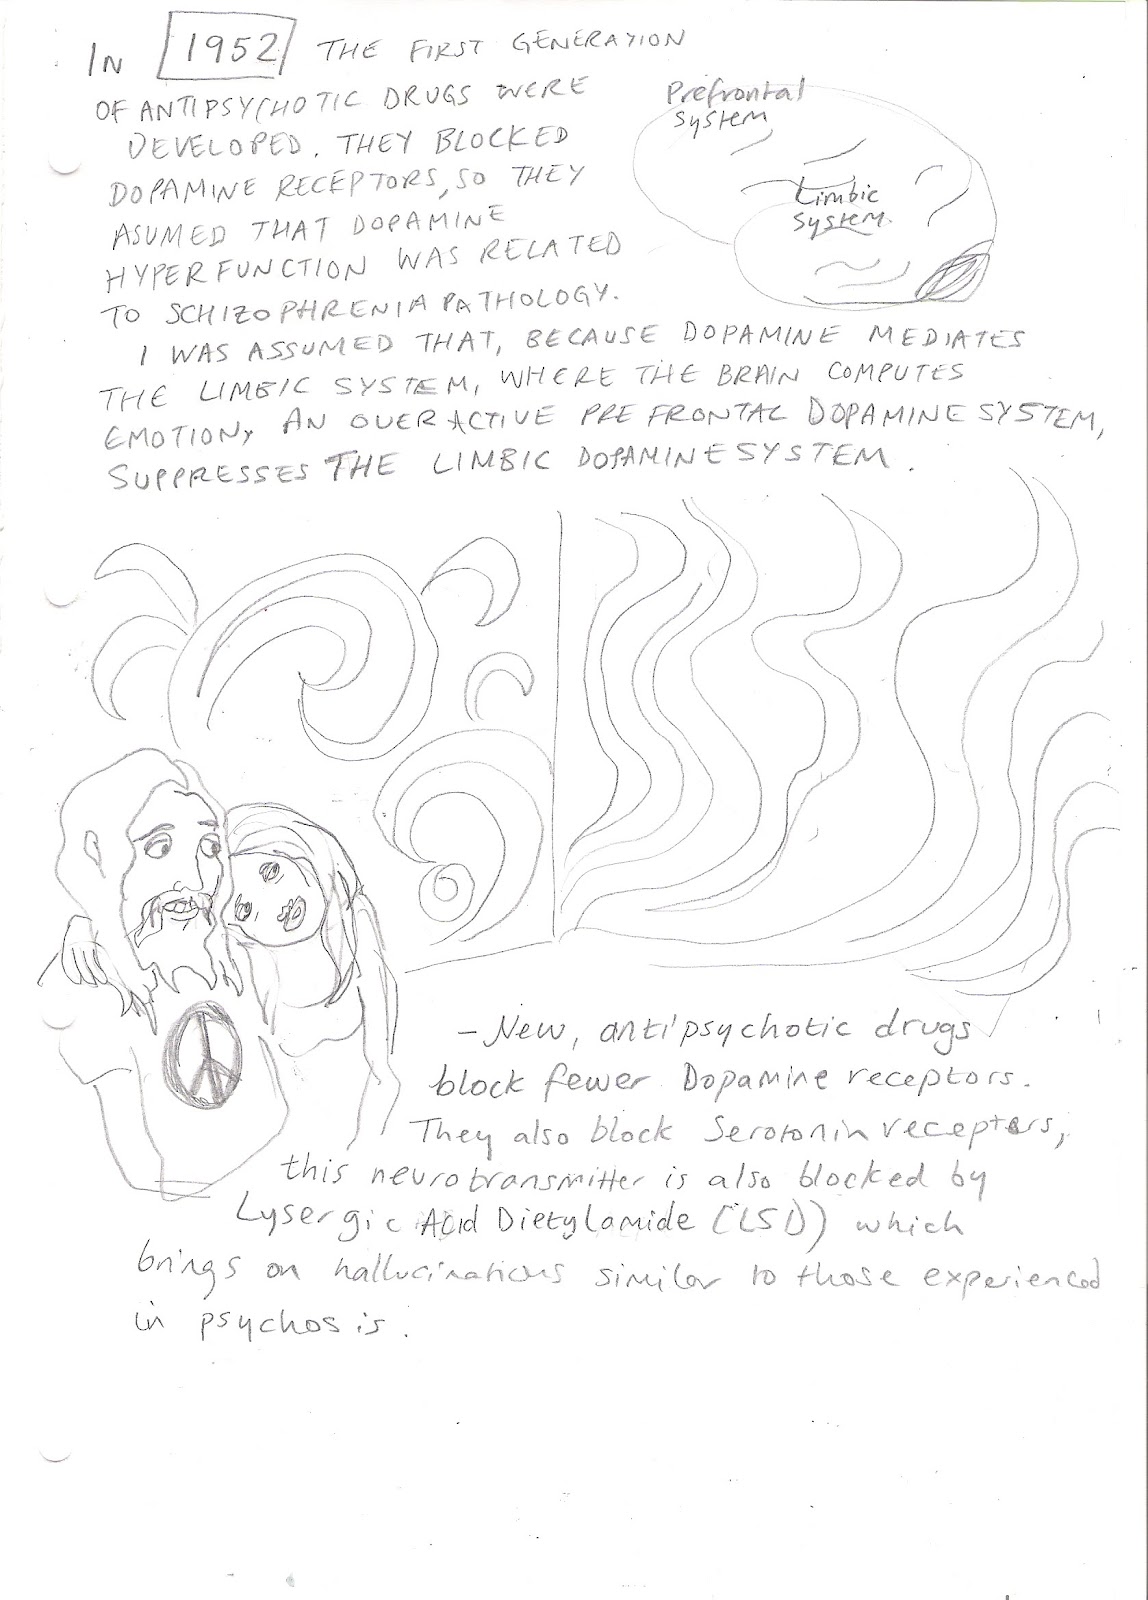 IN 1952 THE FIRST GENERATION
OF ANTIPSYCHOTIC DRUGS WERE
DEVELOPED. THEY BLOCKED
DOPAMINE RECEPTORS, SO THEY
ASUMED THAT DOPAMINE
HYPERFUNCTION WAS RELATED
TO SCHIZOPHRENIA PATHOLOGY.
Prefrontal
system
Limbic
system.
I WAS ASSUMED THAT, BECAUSE DOPAMINE MEDIATES
THE LIMBIC SYSTEM, WHERE THE BRAIN COMPUTES
EMOTION, AN OVERACTIVE PREFRONTAL DOPAMINE SYSTEM,
SUPPRESSES THE LIMBIC DOPAMINE SYSTEM.
- New, antipsychotic drugs
block fewer Dopamine receptors.
They also block Serotonin receptors,
this neurotransmitter is also blocked by
Lysergic Acid Dietylamide (LSD) which
brings on hallucinations similar to those experienced
in psychosis.